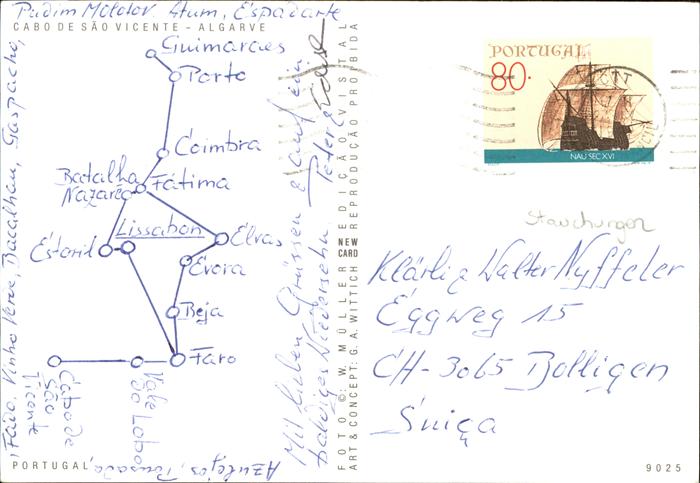 Pudim Molotov, Atum, Espadarte
CABO DE SÃO VICENTE - ALGARVE
Guimaraes
Porto
Coimbra
Batalha
Nazaré
Fátima
Lissabon
Estoril
Elvas
Evora
Beja
Faro
Vale
do Lobo
Cabo de
São
Vicente
Fado, Vinho Verde, Bacalhau, Gaspacho,
Azulejos, Pousada,
PORTUGAL
Mit lieben Grüssen & auf ein
baldiges Wiedersehn
Peter &
FOTO ©: W. MÜLLER EDIÇÃO VISTAL
ART & CONCEPT: G. A. WITTICH REPRODUÇÃO PROIBIDA
NEW
CARD
PORTUGAL
80.
CTT
NAU SEC. XVI
Stauchungen
Klärli & Walter Nyffeler
Eggweg 15
CH-3065 Bolligen
Suiça
9025